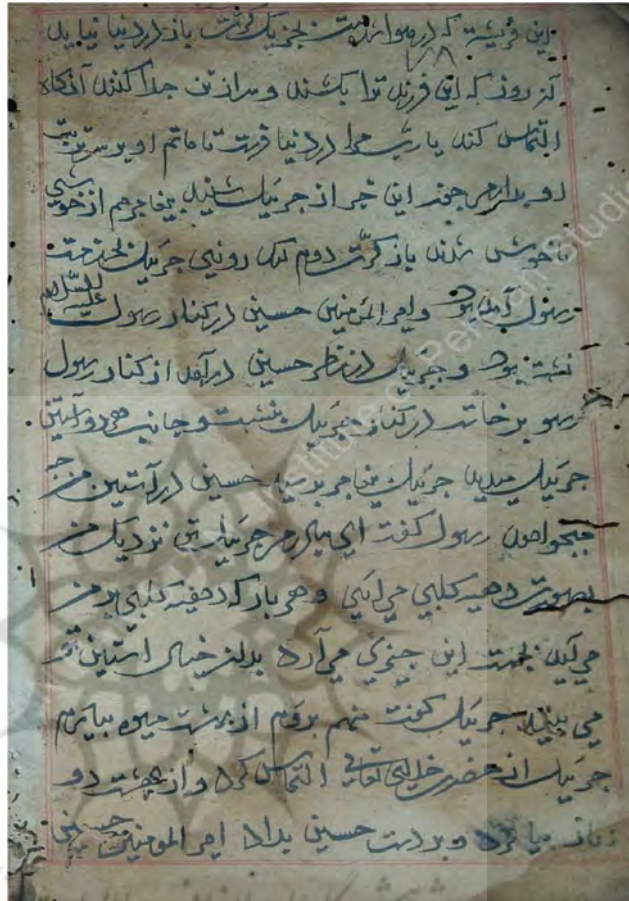 این فریشته که در هوا است بجز یک کرت باز در دنیا نیاید
کز روز که این فرزند ترا بکشند و سر از تن جدا کنند آنکاه
التماس کند یا رب مرا در دنیا فرست تا ماتم او بر سر تربت
او بدارم چند این خبر از جبرئیل شنید پیغامبر هم از خوشی
ناخوش شدند باز کرّت دوم یک روزی جبرئیل بخدمت
رسول آمده بود و امیر المؤمنین حسین در کنار رسول علیه السلام
نشسته بود و جبرئیل در نظر حسین درآمد از کنار رسول
برخاست در کنار جبرئیل بنشست و جانب هر دو آستین
جبرئیل میدید جبرئیل پیغامبر پرسید حسین در آستین من چه
میجوید رسول کفت ای برادر هر بار تو نزدیک من
بصورت دحیه کلبی می آیی و هر بار که دحیه کلبی بر من
می آید بجهت این چیزی می آرد بدان خیال آستین تو
می بیند جبرئیل کفت منهم بروم از بهشت میوه بیارم
جبرئیل از حضرت تعالی التماس کرد و از بهشت دو
بیاورد و بدست حسین بداد امیر المومنین حسین